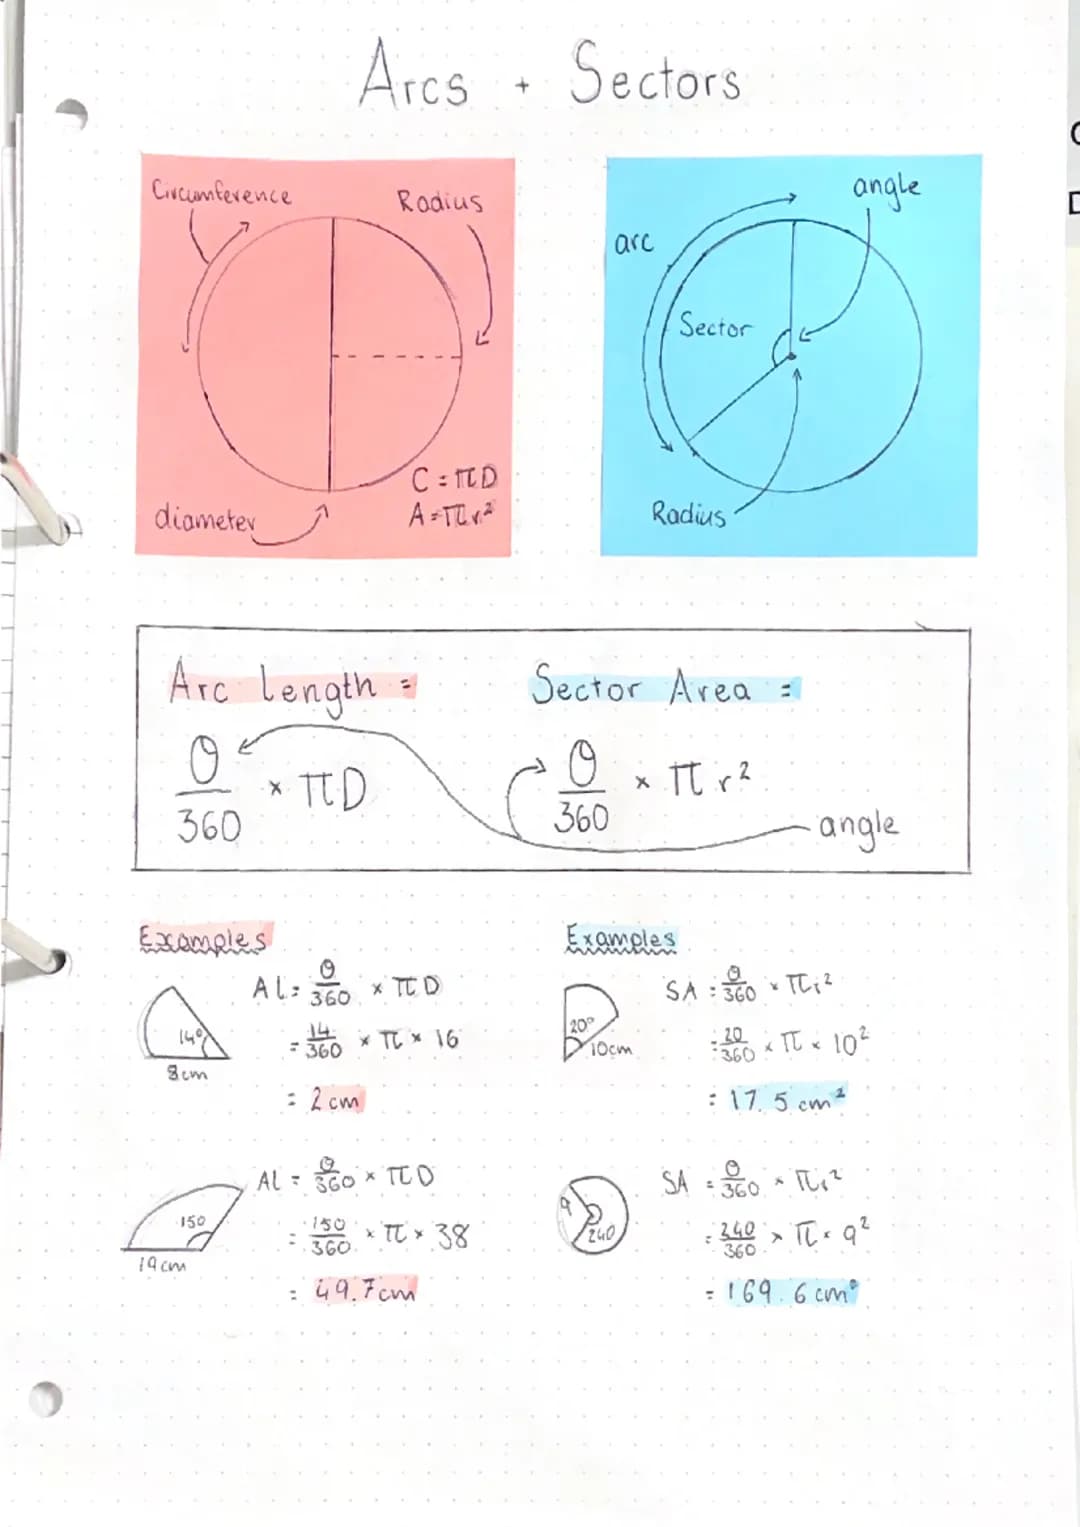 Arcs + Sectors
Circumference
Radius
diameter
C = πD
A = πr²
angle
arc
Sector
Radius
Arc Length =
θ/360 × πD
Sector Area =
θ/360 × πr²
angle
Examples
14°
8cm
AL = θ/360 × πD
= 14/360 × π × 16
= 2cm
150
19cm
AL = θ/360 × πD
= 150/360 × π × 38
= 49.7cm
Examples
20°
10cm
SA = θ/360 × πr²
= 20/360 × π × 10²
= 17.5cm²
9
240
SA = θ/360 × πr²
= 240/360 × π × 9²
= 169.6cm²